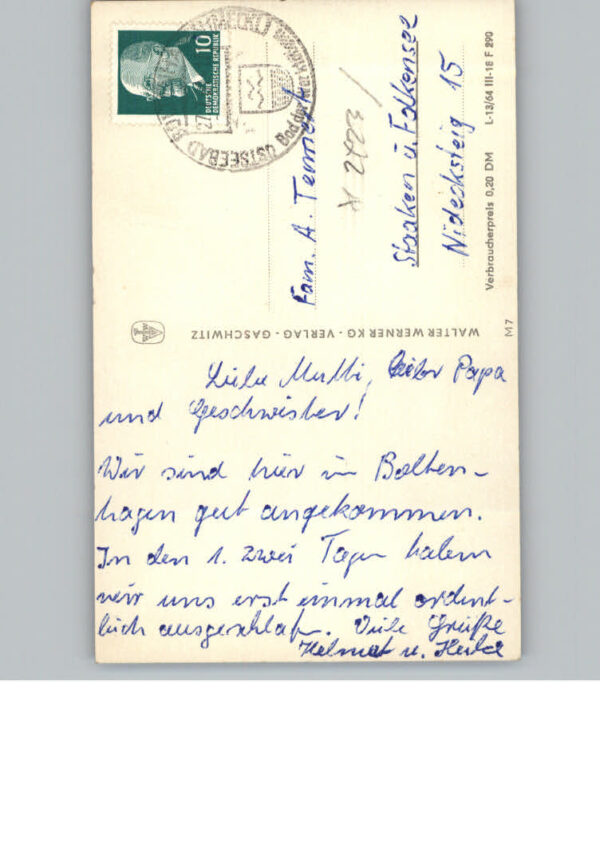 Liebe Mutti, lieber Papa
und Geschwister!
Wir sind hier in Bolten-
hagen gut angekommen.
In den 1. zwei Tagen haben
wir uns erst einmal ordent-
lich ausgeschlafen. Viele Grüße
Helmut u.
Fam. A.
Staaken ü. Falkensee
Nidecksteig 15
Verbraucherpreis 0,20 DM L-13/64 III-18 F 290
WALTER WERNER KG - VERLAG - GASCHWITZ
M 7
10
DEUTSCHE
DEMOKRATISCHE REPUBLIK
OSTSEEBAD
Bad der Werktätigen